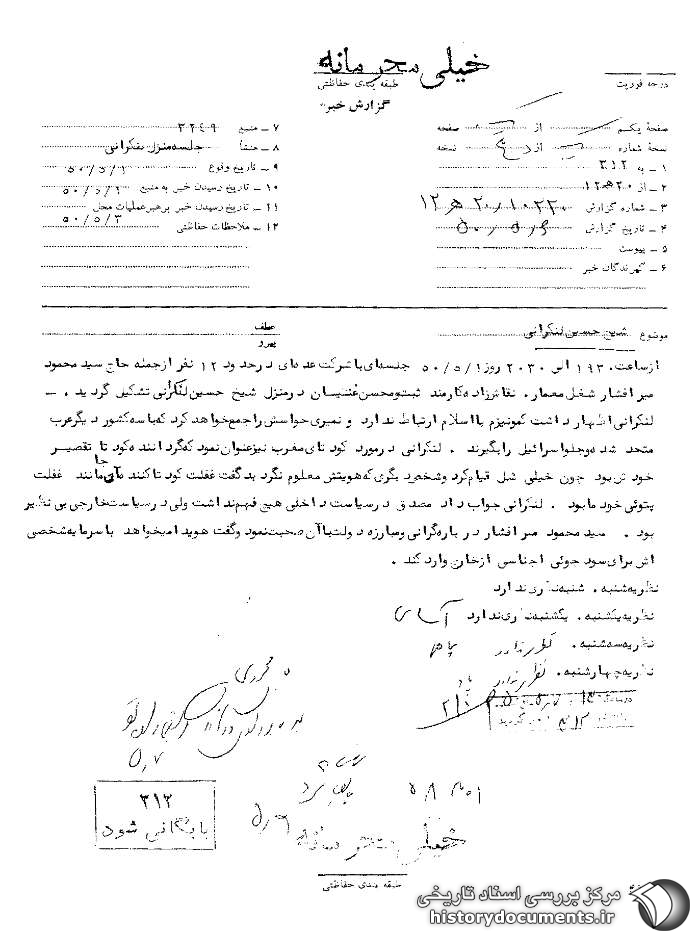 خیلی محرمانه
درجه فوریت
طبقه بندی حفاظتی
گزارش خبر
صفحهٔ یکم از صفحه
نسخهٔ شماره از نسخه
۱ ـ به ۳۱۲
۲ ـ از ۲۰ هـ ۱۲
۳ ـ شماره گزارش ۱۰۲۲۰ / ۲۰ هـ ۱۲
۴ ـ تاریخ گزارش
۵ ـ پیوست
۶ ـ گیرندگان خبر
۷ ـ منبع ۲۲۴۹
۸ ـ منشأ جلسه منزل لنکرانی
۹ ـ تاریخ وقوع ۵۰/۵/۱
۱۰ ـ تاریخ رسیدن خبر به منبع ۵۰/۵/۱
۱۱ ـ تاریخ رسیدن خبر برهبر عملیات محل ۵۰/۵/۳
۱۲ ـ ملاحظات حفاظتی
موضوع شیخ حسین لنکرانی
عطف
پیرو
از ساعت ۱۹۳۰ الی ۲۰۳۰ روز ۵۰/۵/۱ جلسه‌ای با شرکت عده‌ای در حدود ۱۲ نفر از جمله حاج سید محمود
میر افشار شغل معمار. نقاش‌زاده کارمند ثبت و محسن غنیان در منزل شیخ حسین لنکرانی تشکیل گردید. ـ
لنکرانی اظهار داشت کمونیزم با اسلام ارتباط ندارد و نمیری حواسش را جمع خواهد کرد که با سه کشور دیگر عرب
متحد شده و جلو اسرائیل را بگیرند . لنکرانی در مورد کودتای مغرب نیز عنوان نمود که گرداننده کودتا تقصیر
خودش بود چون خیلی شل قیام کرد و شخص دیگری که هویتش معلوم نگردید گفت غفلت کودتا کننده مانند غفلت
خود ما بود . لنکرانی جواب داد مصدق در سیاست داخلی هیچ فهم نداشت ولی در سیاست خارجی بی نظیر
بود . سید محمود میر افشار درباره گرانی و مبارزه دولت با آن صحبت نمود و گفت هویدا میخواهد با سرمایه شخصی
اش برای سود جوئی اجناسی از خارج وارد کند .
نظریه شنبه. شنبه نظری ندارد
نظریه یکشنبه. یکشنبه نظری ندارد آسای
نظریه سه‌شنبه. نظری ندارد
نظریه چهارشنبه. نظری ندارد
۵/۷
۵/۶
۳۱۲
بایگانی شود
خیلی محرمانه
طبقه بندی حفاظتی
مرکز بررسی اسناد تاریخی
historydocuments.ir